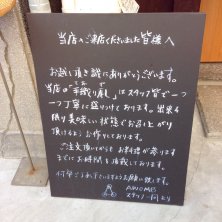 当店のご来店くださいました皆様へ
お越し頂き誠にありがとうございます。
当店の「手織り寿し」はスタッフ皆で一つ
一つ丁寧に盛りつけております。出来る
限り美味しい状態でお召し上がり
頂けるよう お作りしております。
ご注文頂いてからお料理が参ります
までにお時間を頂戴しております。
何卒ご了承下さいますようお願い致します。
AWOMB
スタッフ一同より